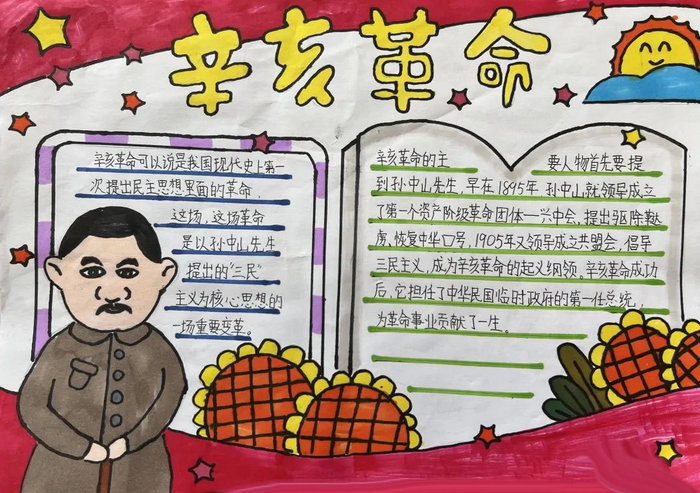 辛亥革命
辛亥革命可以说是我国现代史上第一
次提出民主思想里面的革命，
这场，这场革命
是以孙中山先生
提出的“三民”
主义为核心思想的
一场重要变革。
辛亥革命的主 要人物首先要提
到孙中山先生，早在1895年 孙中山就领导成立
了第一个资产阶级革命团体—兴中会，提出驱除鞑
虏，恢复中华口号，1905年又领导成立共盟会，倡导
三民主义，成为辛亥革命的起义纲领，辛亥革命成功
后，它担任了中华民国临时政府的第一任总统，
为革命事业贡献了一生。